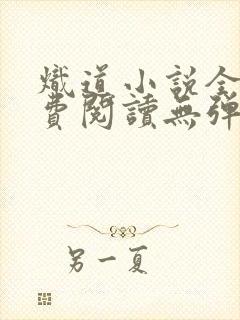 熾道小説全
費閱讀無彈
另一夏